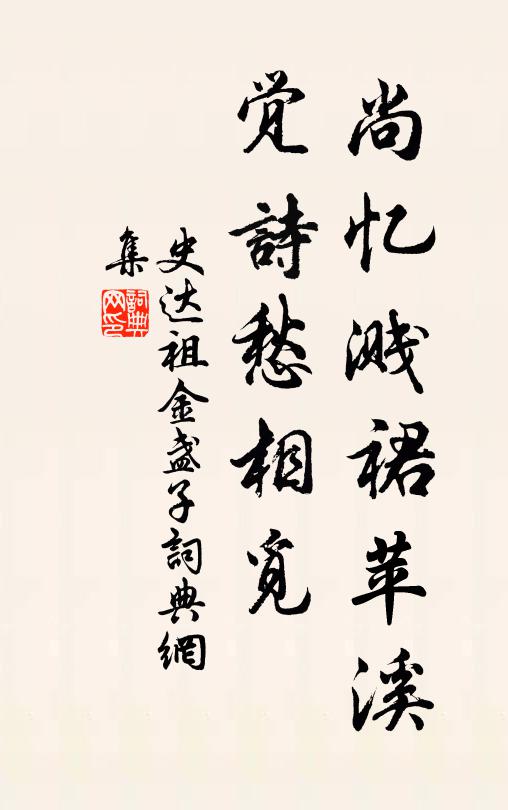 尚忆溅裙苹溪
觉詩愁相觅
史达祖金盏子詞典網
集
詞典
网印